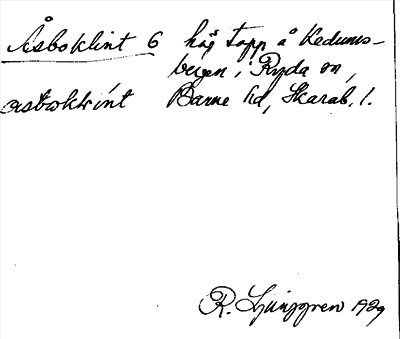 Åsboklint 6 hög topp å Kedums-
bergen i Ryda sn,
Barne hd, Skarab. l.
R. Ljunggren 1929